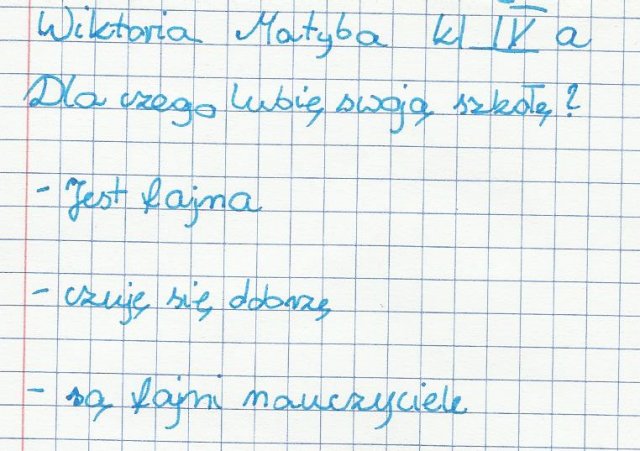 Wiktoria Matyba kl IV a
Dla czego lubię swoją szkołę?
- Jest fajna
- czuję się dobrzę
- są fajni nauczyciele